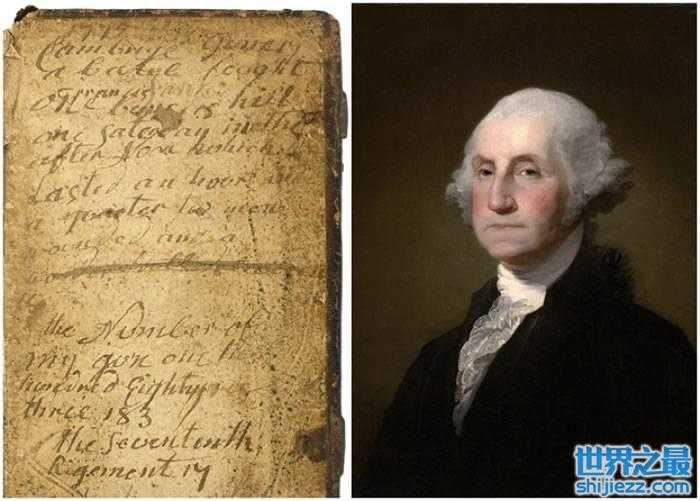 1775
Cambrige
a batel fought
one hill
one Saterday in the
after Noon which
Lasted an hour
a quarter two men
wounded and a
the Number of
my gun one
hundred Eighty
three 183
the Seventeenth
Rigement 17
世界之最
shijiezz.com